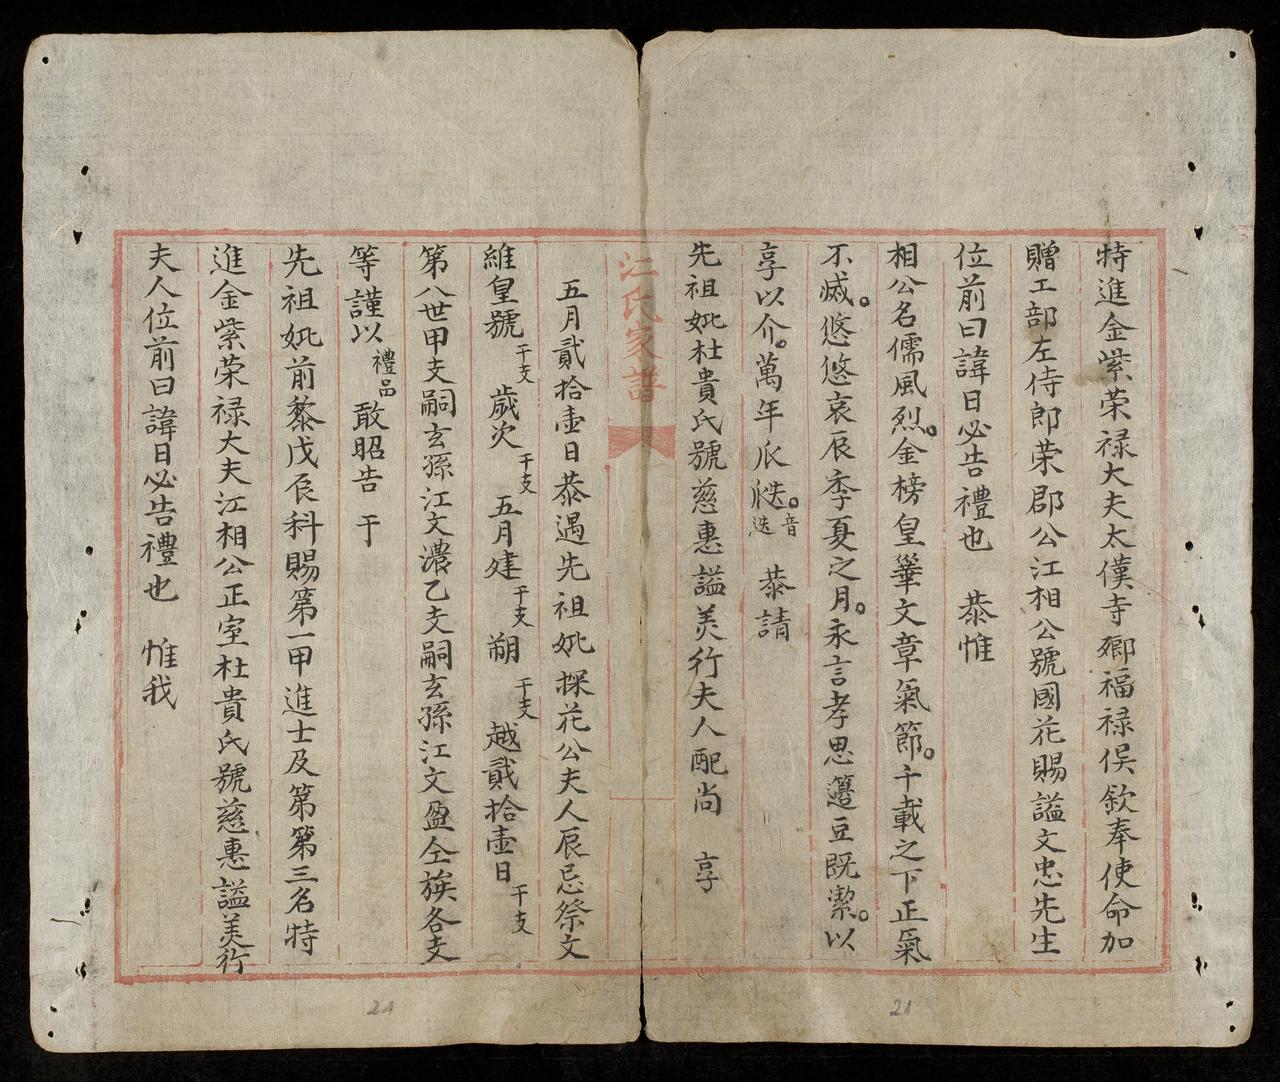 特進金紫荣禄大夫太僕寺卿福禄侯欽奉使命加
贈工部左侍郎荣郡公江相公號國花賜謚文忠先生
位前曰諱日必告禮也　恭惟
相公名儒風烈。金榜皇華文章氣節。千載之下正氣
不滅。悠悠哀辰季夏之月。永言孝思籩豆既潔。以
享以介。萬年瓜瓞。音迭　恭請
先祖妣杜貴氏號慈惠謚美行夫人配尚　享
江氏家譜
五月貳拾壹日恭遇先祖妣探花公夫人辰忌祭文
維皇號干支歲次干支五月建干支朔干支越貳拾壹日干支
第八世甲支嗣玄孫江文濃乙支嗣玄孫江文盈仝族各支
等謹以禮品敢昭告于
先祖妣前黎戊辰科賜第一甲進士及第第三名特
進金紫荣禄大夫江相公正室杜貴氏號慈惠謚美行
夫人位前曰諱日必告禮也　惟我
21
21